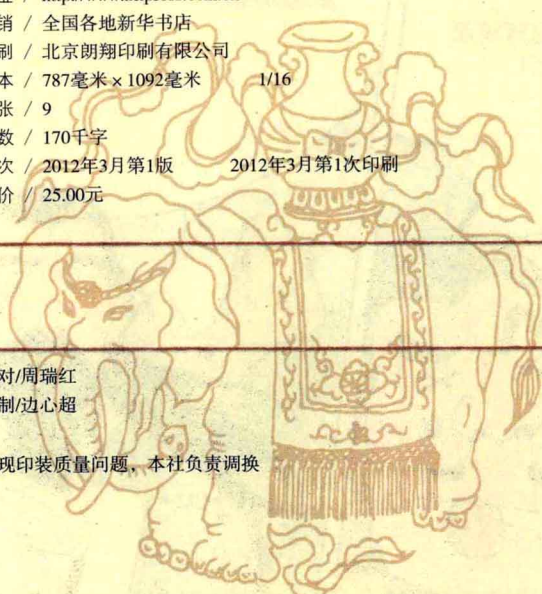 销 / 全国各地新华书店
刷 / 北京朗翔印刷有限公司
本 / 787毫米×1092毫米 1/16
张 / 9
数 / 170千字
次 / 2012年3月第1版 2012年3月第1次印刷
价 / 25.00元
对/周瑞红
制/边心超
现印装质量问题，本社负责调换